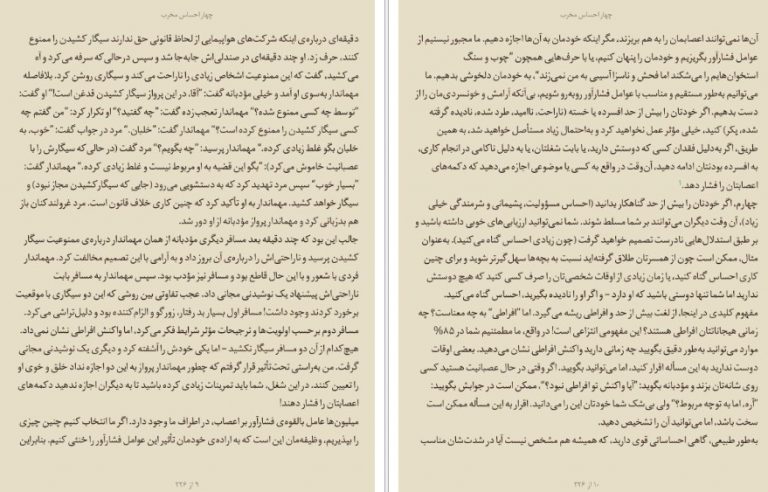 چهار احساس مخرب
دقیقه‌ای درباره‌ی اینکه شرکت‌های هواپیمایی از لحاظ قانونی حق ندارند سیگار کشیدن را ممنوع
کنند، حرف زد. او چند دقیقه‌ای در صندلی‌اش جابه‌جا شد و سپس درحالی که سرفه می‌کرد و آه
می‌کشید، گفت که این ممنوعیت اشخاص زیادی را ناراحت می‌کند و سیگاری روشن کرد. بلافاصله
مهماندار به‌سوی او آمد و خیلی مؤدبانه گفت: "آقا، در این پرواز سیگار کشیدن قدغن است!" او گفت:
"توسط چه کسی ممنوع شده؟" مهماندار تعجب‌زده گفت: "چه گفتید؟" او تکرار کرد: "من گفتم چه
کسی سیگار کشیدن را ممنوع کرده است؟" مهماندار گفت: "خلبان." مرد در جواب گفت: "خوب، به
خلبان بگو غلط زیادی کرده." مهماندار پرسید: "چه بگویم؟" مرد گفت (در حالی که سیگارش را با
عصبانیت خاموش می‌کرد): "بگو این قضیه به او مربوط نیست و غلط زیادی کرده." مهماندار گفت:
"بسیار خوب" سپس مرد تهدید کرد که به دستشویی می‌رود (جایی که سیگار کشیدن مجاز نبود) و
سیگار خواهد کشید. مهماندار به او تأکید کرد که چنین کاری خلاف قانون است. مرد غرولند کنان باز
هم بدزبانی کرد و مهماندار پرواز مؤدبانه از او دور شد.
جالب این بود که چند دقیقه بعد مسافر دیگری مؤدبانه از همان مهماندار درباره‌ی ممنوعیت سیگار
کشیدن پرسید و ناراحتی‌اش را درباره‌ی آن بروز داد و به آرامی با این تصمیم مخالفت کرد. مهماندار
فردی با شعور و با این حال قاطع بود و مسافر نیز مؤدب بود. سپس مهماندار به مسافر بابت
ناراحتی‌اش پیشنهاد یک نوشیدنی مجانی داد. عجب تفاوتی بین روشی که این دو سیگاری با موقعیت
برخورد کردند وجود داشت! مسافر اول بسیار بد رفتار، زورگو و الزام‌کننده بود و دلیل‌تراشی می‌کرد.
مسافر دوم بر حسب اولویت‌ها و ترجیحات مؤثر شرایط فکر می‌کرد، اما واکنش افراطی نشان نمی‌داد.
هیچ‌کدام از آن دو مسافر سیگار نکشید - اما یکی خودش را آشفته کرد و دیگری یک نوشیدنی مجانی
گرفت. من به‌راستی تحت‌تأثیر قرار گرفتم که چطور مهماندار پرواز به این دو اجازه نداد خلق و خوی او
را تعیین کنند. در این شغل، شما باید تمرینات زیادی کرده باشید تا به دیگران اجازه ندهید دکمه‌های
اعصابتان را فشار دهند!
میلیون‌ها عامل بالقوه‌ی فشارآور بر اعصاب، در اطراف ما وجود دارد. اگر ما انتخاب کنیم چنین چیزی
را بپذیریم، وظیفه‌مان این است که به اراده‌ی خودمان تأثیر این عوامل فشارآور را خنثی کنیم. بنابراین
۹ از ۲۲۶
چهار احساس مخرب
آن‌ها نمی‌توانند اعصابمان را به هم بریزند، مگر اینکه خودمان به آن‌ها اجازه دهیم. ما مجبور نیستیم از
عوامل فشارآور بگریزیم و خودمان را پنهان کنیم، یا با حرف‌هایی همچون "چوب و سنگ
استخوان‌هایم را می‌شکند اما فحش و ناسزا آسیبی به من نمی‌زند"، به خودمان دلخوشی بدهیم. ما
می‌توانیم به‌طور مستقیم و مناسب با عوامل فشارآور روبه‌رو شویم، بی‌آنکه آرامش و خونسردی‌مان را از
دست بدهیم. اگر خودتان را بیش از حد افسرده یا خسته (ناراحت، ناامید، طرد شده، نادیده گرفته
شده، پکر) کنید، خیلی مؤثر عمل نخواهید کرد و به‌احتمال زیاد مستأصل خواهید شد، به همین
طریق، اگر به‌دلیل فقدان کسی که دوستش دارید، یا بابت شغلتان، یا به دلیل ناکامی در انجام کاری،
به افسرده بودنتان ادامه دهید، آن‌وقت در واقع به کسی یا موضوعی اجازه می‌دهید که دکمه‌های
اعصابتان را فشار دهد.۱
چهارم، اگر خودتان را بیش از حد گناهکار بدانید (احساس مسؤولیت، پشیمانی و شرمندگی خیلی
زیاد)، آن وقت دیگران می‌توانند بر شما مسلط شوند. شما نمی‌توانید ارزیابی‌های خوبی داشته باشید و
بر طبق استدلال‌هایی نادرست تصمیم خواهید گرفت (چون زیادی احساس گناه می‌کنید). به‌عنوان
مثال، ممکن است چون از همسرتان طلاق گرفته‌اید نسبت به بچه‌ها سهل‌گیرتر شوید و برای چنین
کاری احساس گناه کنید، یا زمان زیادی از اوقات شخصی‌تان را صرف کسی کنید که هیچ دوستش
ندارید اما شما تنها دوستی باشید که او دارد - و اگر او را نادیده بگیرید، احساس گناه می‌کنید.
مفهوم کلیدی در اینجا، از لغت بیش از حد و افراطی ریشه می‌گیرد. اما "افراطی" به چه معناست؟ چه
زمانی هیجاناتتان افراطی هستند؟ این مفهومی انتزاعی است! در واقع، ما مطمئنیم شما در ۸۵%
موارد می‌توانید به‌طور دقیق بگویید چه زمانی دارید واکنش افراطی نشان می‌دهید. بعضی اوقات
دوست ندارید به این مسأله اقرار کنید، اما می‌توانید بگویید. اگر وقتی در حال عصبانیت هستید کسی
روی شانه‌تان بزند و مؤدبانه بگوید: "آیا واکنش تو افراطی نبود؟"، ممکن است در جوابش بگویید:
"آره. اما به توچه مربوط؟" ولی بی‌شک شما خودتان این را می‌دانید. اقرار به این مسأله ممکن است
سخت باشد، اما می‌توانید آن را تشخیص دهید.
به‌طور طبیعی، گاهی احساساتی قوی دارید، که همیشه هم مشخص نیست آیا در شدت‌شان مناسب
۱۰ از ۲۲۶